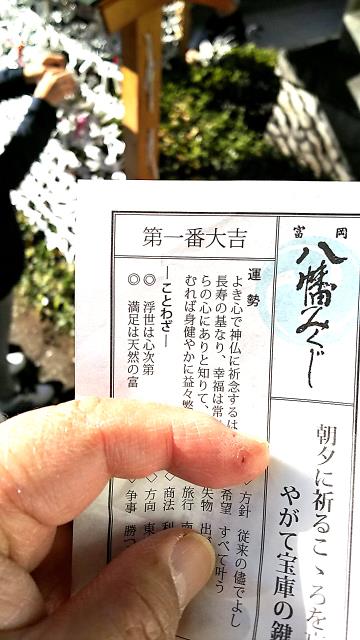 富岡
八幡みくじ
朝夕に祈るこゝろを
やがて宝庫の鍵
第一番大吉
運勢
よき心で神仏に祈念するは
長寿の基なり、幸福は常
らの心にありと知りて、
むれば身健やかに益々繁
―ことわざ―
◎ 浮世は心次第
◎ 満足は天然の富
方針 従来の儘でよし
希望 すべて叶う
失物 出
旅行 南
商法 利
方向 東
争事 勝つ